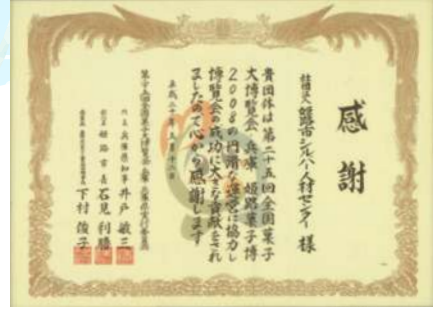 感謝
社団法人姫路市シルバー人材センター 様
貴団体は第二十五回全国菓子
大博覧会・兵庫 姫路菓子博
2008の円滑な運営に協力し
博覧会の成功に大きな貢献をされ
ましたので心から感謝します
平成二十年五月十八日
第二十五回全国菓子大博覧会・兵庫
兵庫県知事 井戸敏三
姫路市長 石見利勝
下村俊子